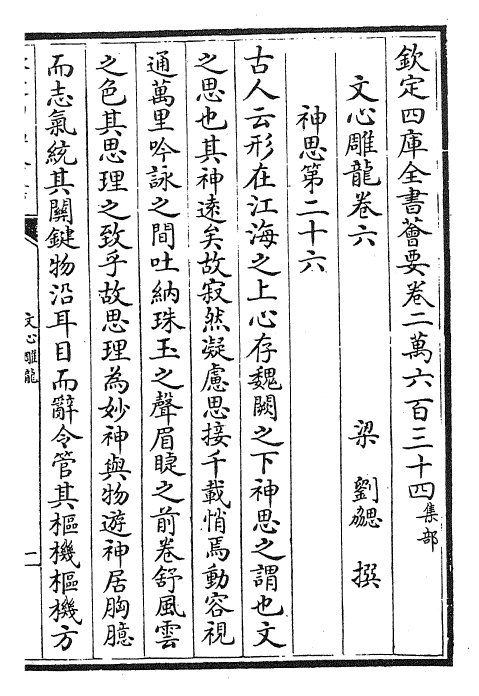 欽定四庫全書薈要卷二萬六百三十四集部
文心雕龍卷六
梁 劉勰 撰
神思第二十六
古人云形在江海之上心存魏闕之下神思之謂也文
之思也其神遠矣故寂然凝慮思接千載悄焉動容視
通萬里吟詠之間吐納珠玉之聲眉睫之前卷舒風雲
之色其思理之致乎故思理為妙神與物遊神居胸臆
而志氣統其關鍵物沿耳目而辭令管其樞機樞機方
文心雕龍
一